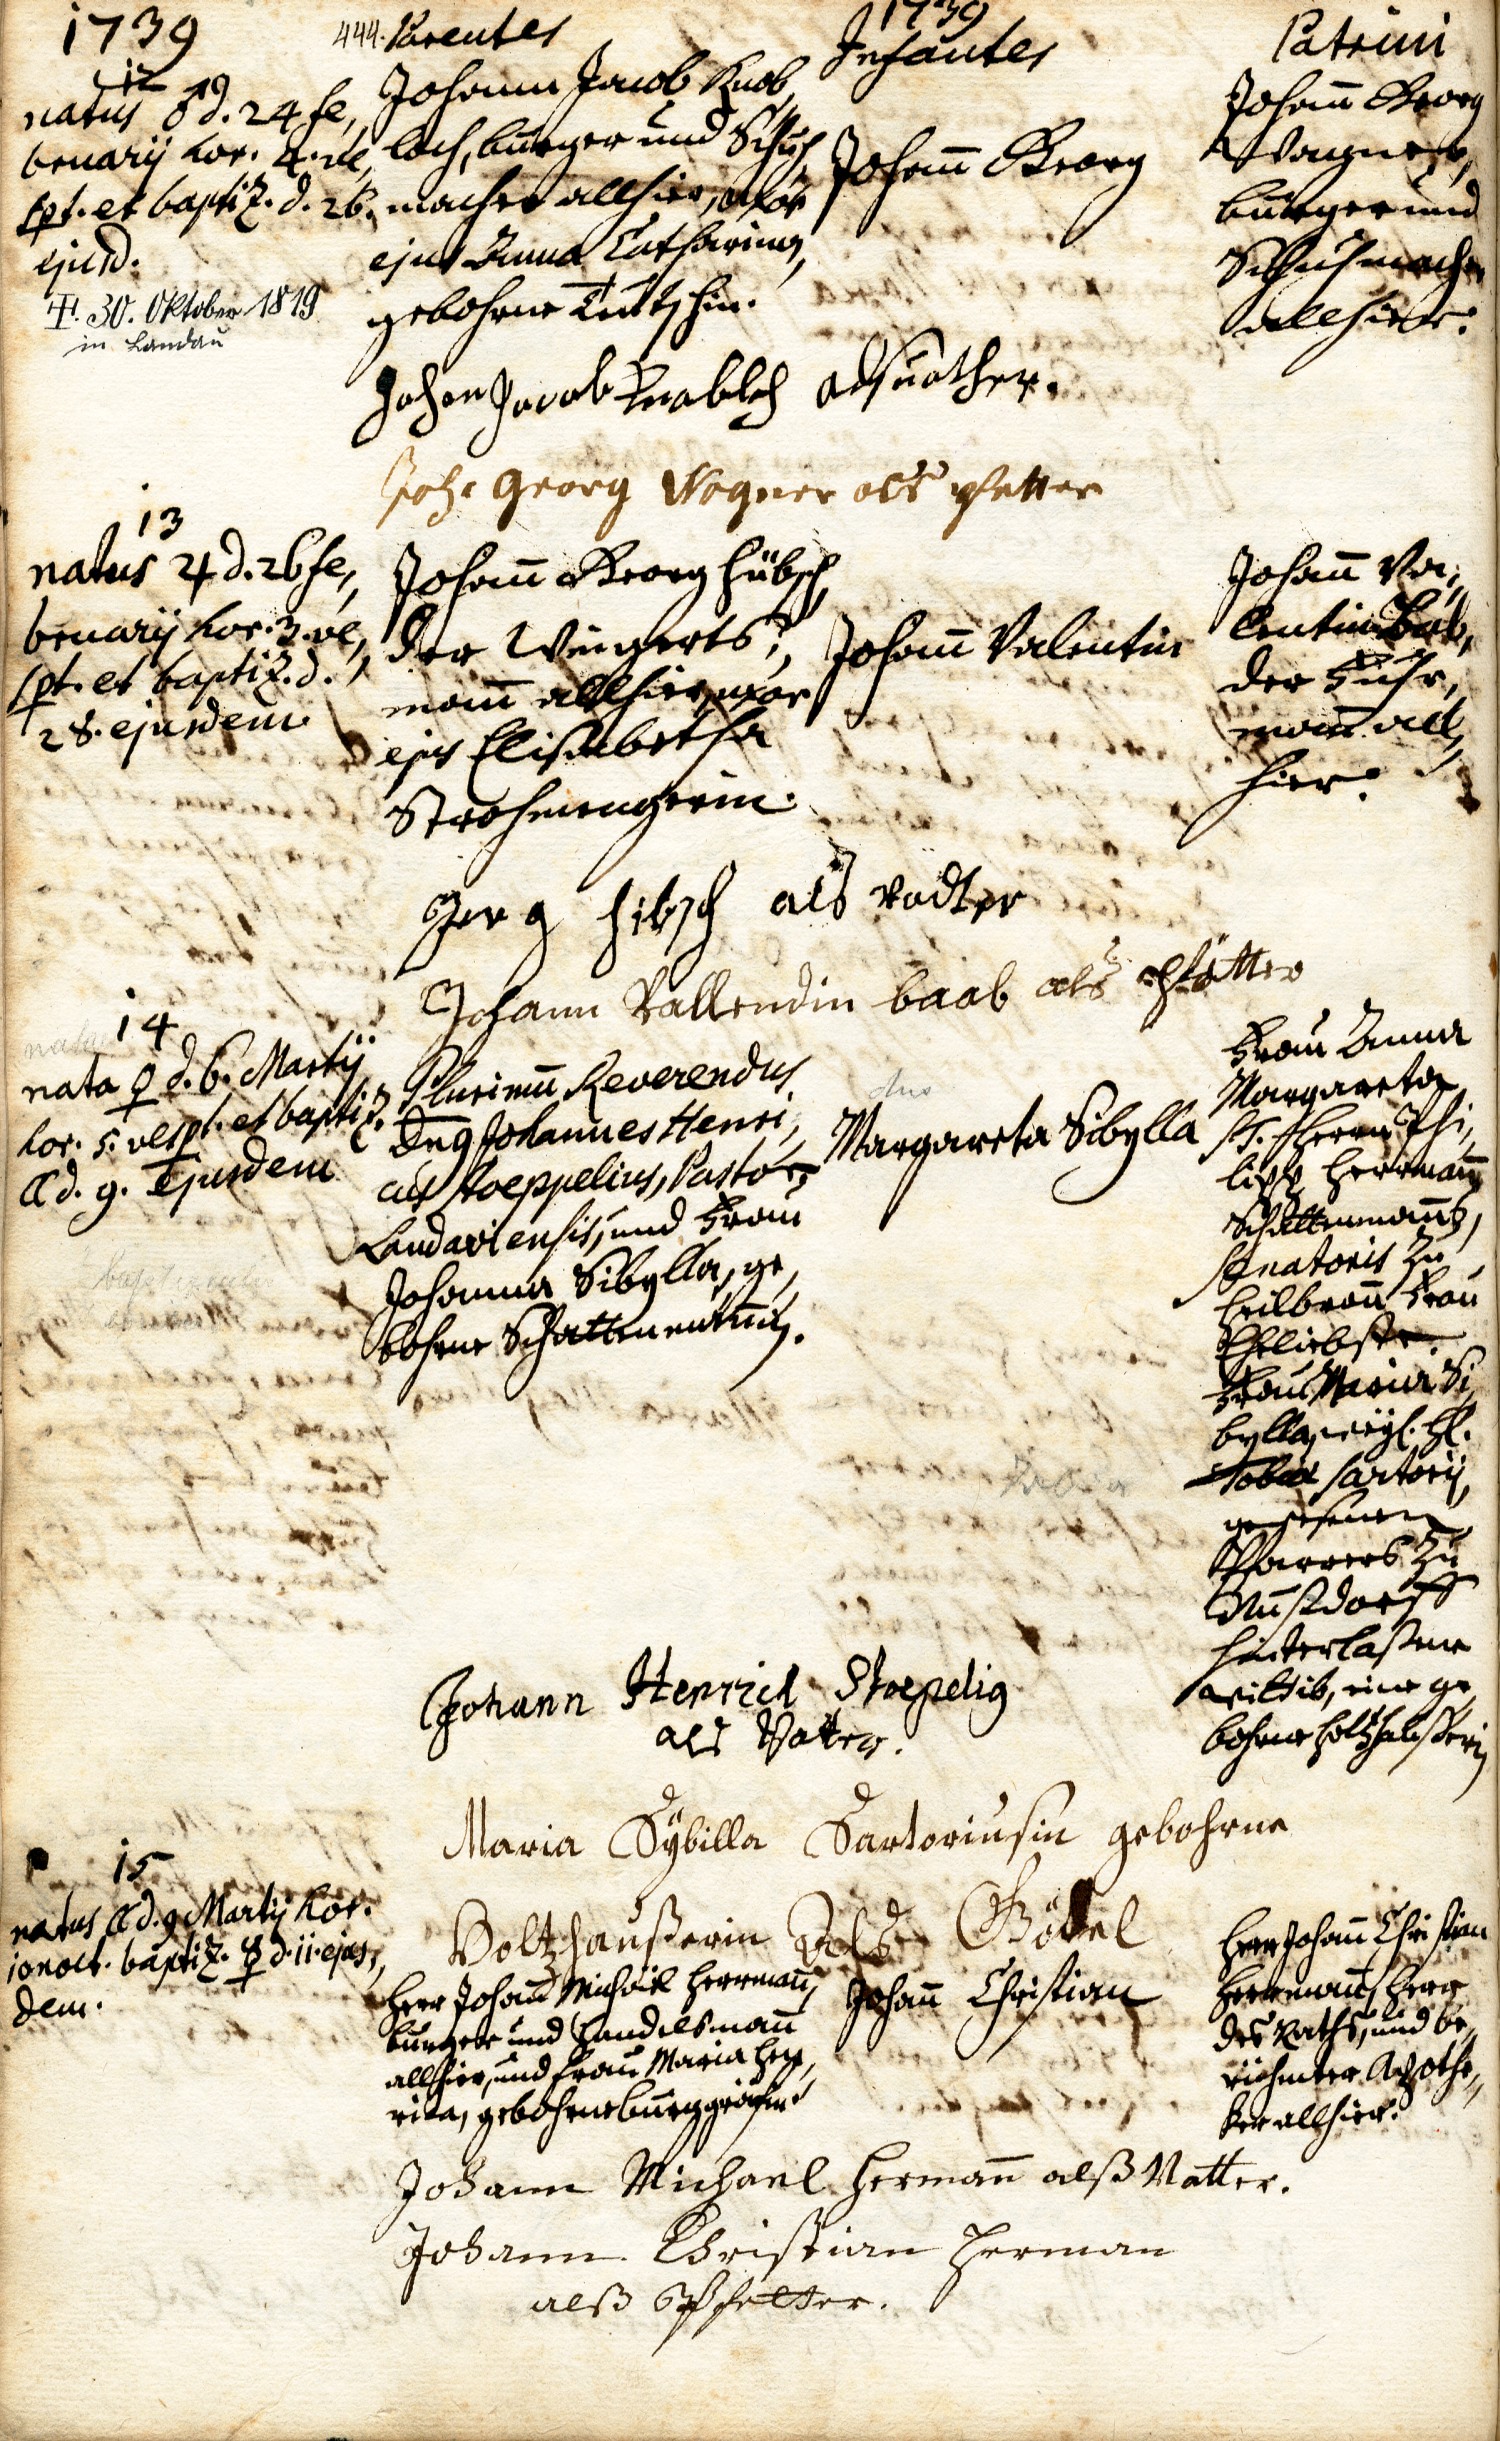 1739
444. Parentes
1739
Infantes
Patrini
12
natus ♂ d. 24 fe,
bruarij hor. 4. ve,
spt. et baptiz. d. 26.
ejusd.
30. Oktober 1819
in Landau
Johann Jacob Knob,
loch, burger und Schuh,
macher allhier, uxor
ejus Anna Catharina,
gebohrne
Johann Georg
Johann Georg
Wagner,
burger und
Schuhmacher
allhier.
Johan Jacob Knobloch als vather.
Joh: Georg Wagner als pfetter
13
natus ♃ d. 26 fe,
bruarij hor. 3. ve,
spt. et baptiz. d.
28. ejusdem
Johann Georg Hübsch,
der Weingerts,
mann allhier, uxor
ejus Elisabetha
Strohmengerin.
Johann Valentin
Johann Va,
lentin Bab,
der Fuhr,
mann all,
hier.
Jerg Hibsch als vadter
Johann Vallendin baab als pfätter
14
nata ♀ d. 6. Martij
hor. 5. vespt. et baptiz.
☾ d. 9. Ejusdem
Plurimum Reverendus
Dng Johannes Henri,
cus Stoeppelius, Pastor
Landaviensis, und Frau
Johanna Sibylla, ge,
bohrne Schattenmännin.
Margareta Sibylla
Frau Anna
Margareta,
Herrn Phi,
lipp Herrmann
Schattenmanns,
Senatoris zu
Heilbronn Frau
Eheliebste.
Frau Maria Si,
bylla, weyl. H.
Tobiae Sartorij,
gewesenen
Pfarrers zu
Nußdorff
hinterlaßene
Wittib, eine ge,
bohrne Holtzhaußerin
Johann Henrich Stoepelig
als Vatter.
Maria Sybilla Sartoriusin gebohrne
Holtzhaußerin Als Göttel
15
natus ☾ d. 9 Martij hor.
10 noct. baptiz. ☿ d. 11. ejus,
dem.
Herr Johann Michäel Herrmann,
burger und Handelsmann
allhier, und Frau Maria Hen,
rica, gebohrne burggräfin
Johann Christian
Herr Johann Christian
Herrmann, Herr
des Raths, und be,
rühmter Apothe,
ker allhier.
Johann Michael Hermann alß Vatter.
Johann Christian Herman
alß Pfetter.